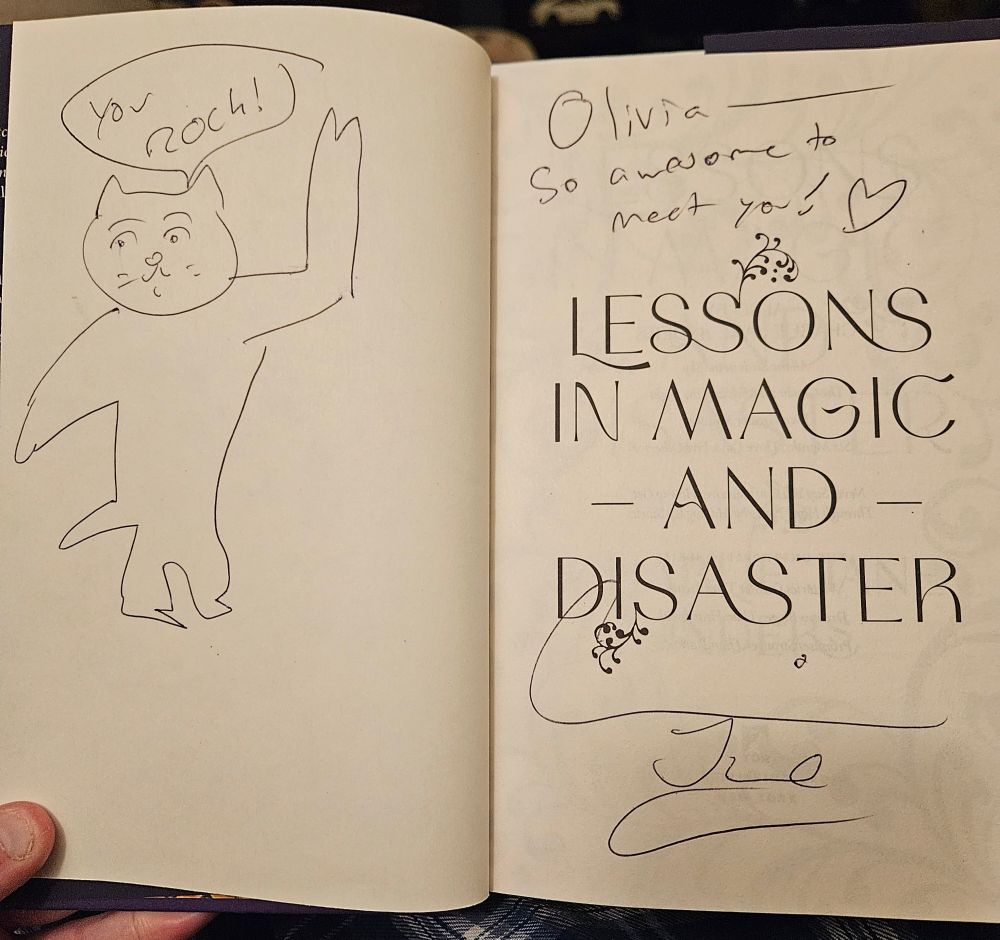 You
ROCK!
Olivia
So awesome to
meet you!
LESSONS
IN MAGIC
— AND —
DISASTER